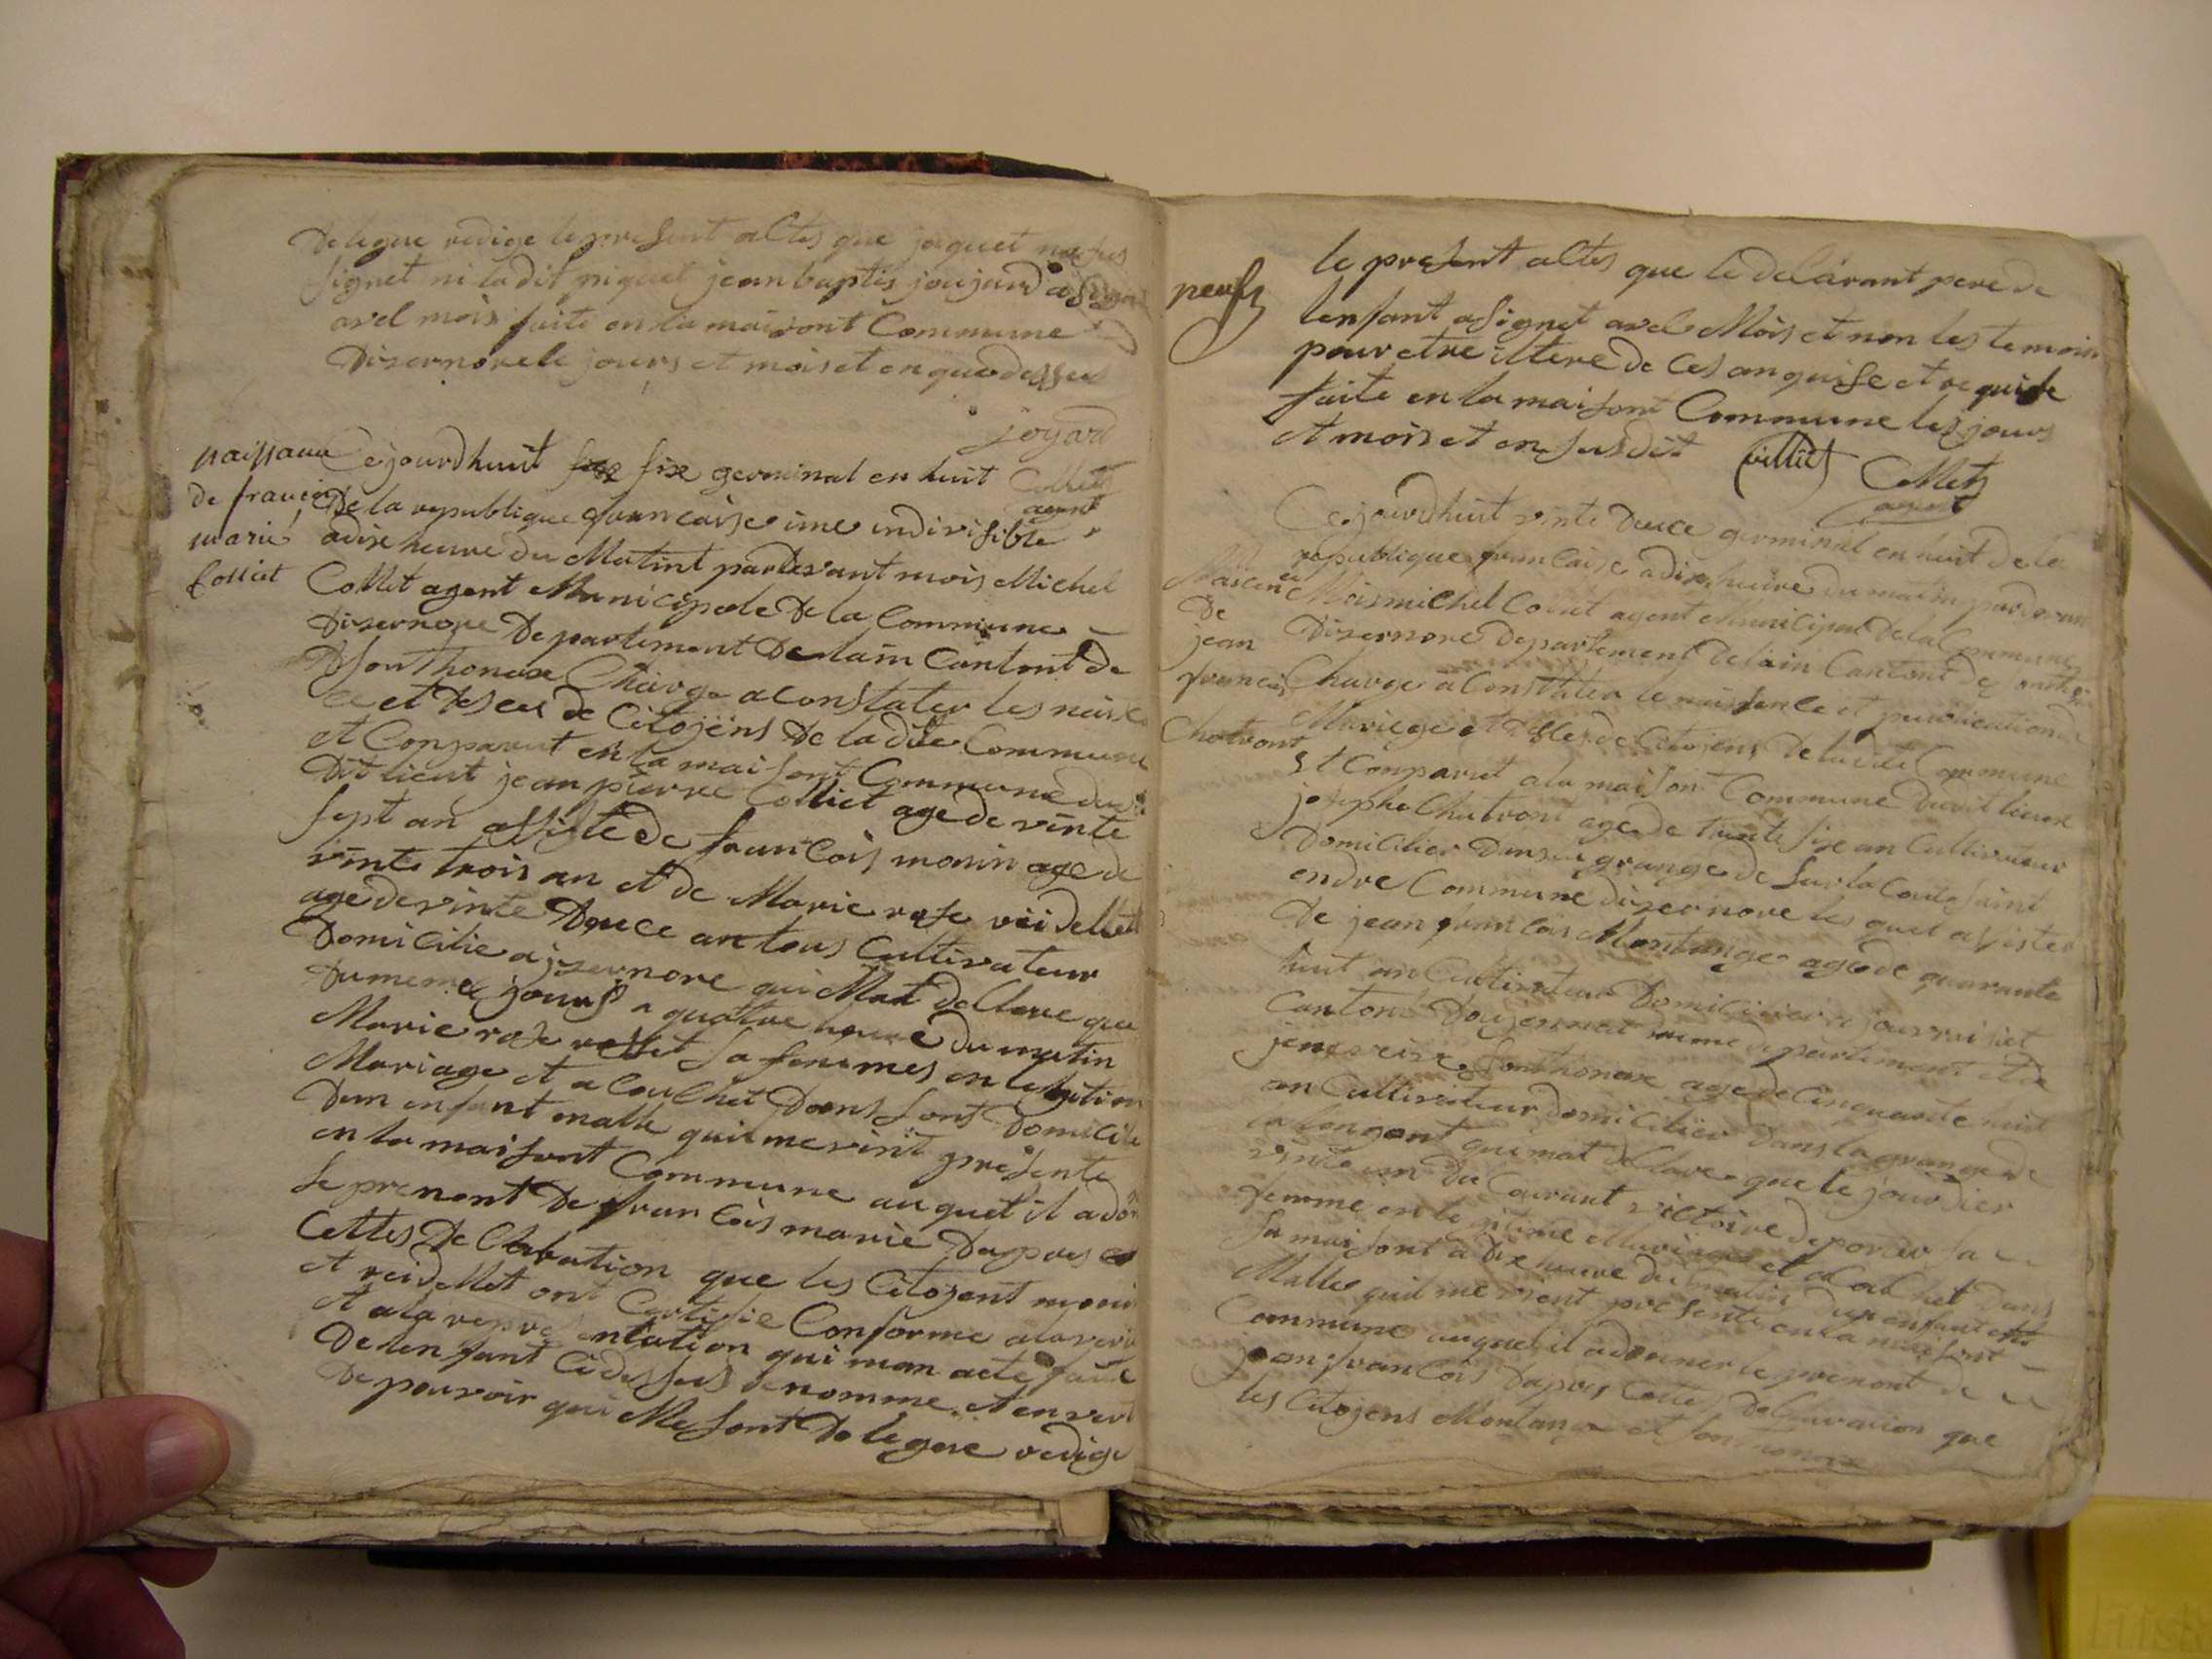 Delegue redige le present actes que jaquet
signet ni ladit piquet jean baptis joujard a signet
avel mois faite en la maisont Commune
Disernore le jours et mois et en que dessus
joyard
Collet
agent
naissance
de francois
marie
Colliet
Cejourdhuit six germinal en huit
De la republique francaise une indivisible
a dix heure du Matint pardevant mois Michel
Collet agent Municipale De la Commune
Disernore Departement Delain Cantont de
Sonthonax Charge a Constater les naisce
ce et deces de Citojens De la dite Commune
et Conparut en la maisont Commune du
Dit lieut jean pierre Colliet age de vinte
sept an assiste de francois monin age de
vinte trois an et de Marie rose veidellet
age de vinte Deuce an tous Cultivateur
Domicilie a jzernore qui Mat Dellare que
Du meme jours a quatre heure du matin
Marie rose rosset sa femmes en legition
Mariage et a Coulhet Dans sont Domicile
Dun enfant malle quil me vint presente
en la maisont Commune auquet il a don
le prenont De francois marie Dapres
Cettes Declaration que les Citojent monin
et veidellet ont Certifie Conforme a la verit
et a la representation qui man aete faite
De lenfant Cidessus denomme et en vert
De pouvoir qui Me sont Delegue redige
le present actes que le delarant pere de
lenfant a signet avel Mois et non les temoin
pour etre iltere de Ces anquise et requise
faite en la maisont Commune les jours
et mois et en susdit Colliet Collet
agent
Naiscence
De
jean
francois
Chatront
Cejourdhuit vinte Deuce germinal en huit de la
republique francaise a dix heure du matin pardevan
Mois michel Collet agent Municipal De la Commune
Disernore Departement Delain Cantont de
Charge a Constater le naissence et publication
Mariege et deces de Citojens De ladite Commune
et Conparut a la maisont Commune dudit lieux
josephe Chatront age de trente six an Cultivateur
Domicilier Dans la grange de sur la Coute saint
endre Commune disernore les quel assister
De jean francois Montange age de quarante
huit an Cultivateur Domicilier a
Cantont Doujonnat meme departement et de
Sonthonax age de Cinquante huit
an Cultivateur domicilier Dans la grange de
qui mat Dellare que le jour dier
vinte un Du Courant victoire
femme en legitime Mariage et a Coulhet Dans
sa maisont a dix heure du matin dun enfant
Malle quil me vient presente en la maisont
Commune auquel il a donner le prenont de
jean francois Dapres Cette Declaration que
les Citojens Montange et sonthonax